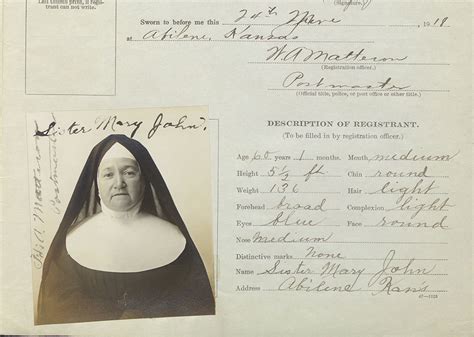 if registrant
can not write.)
(Signature.)
Sworn to before me this 24th June , 1918
at Abilene, Kansas
W A Matteson
(Registration officer.)
Postmaster
(Official title, police, or post office or other title.)
Sister Mary John.
By W.A. Matteson
Postmaster
DESCRIPTION OF REGISTRANT.
(To be filled in by registration officer.)
Age 60 years 1 months Mouth medium
Height 5½ ft Chin round
Weight 136 Hair light
Forehead broad Complexion light
Eyes blue Face round
Nose medium
Distinctive marks None
Name Sister Mary John
Address Abilene Kans